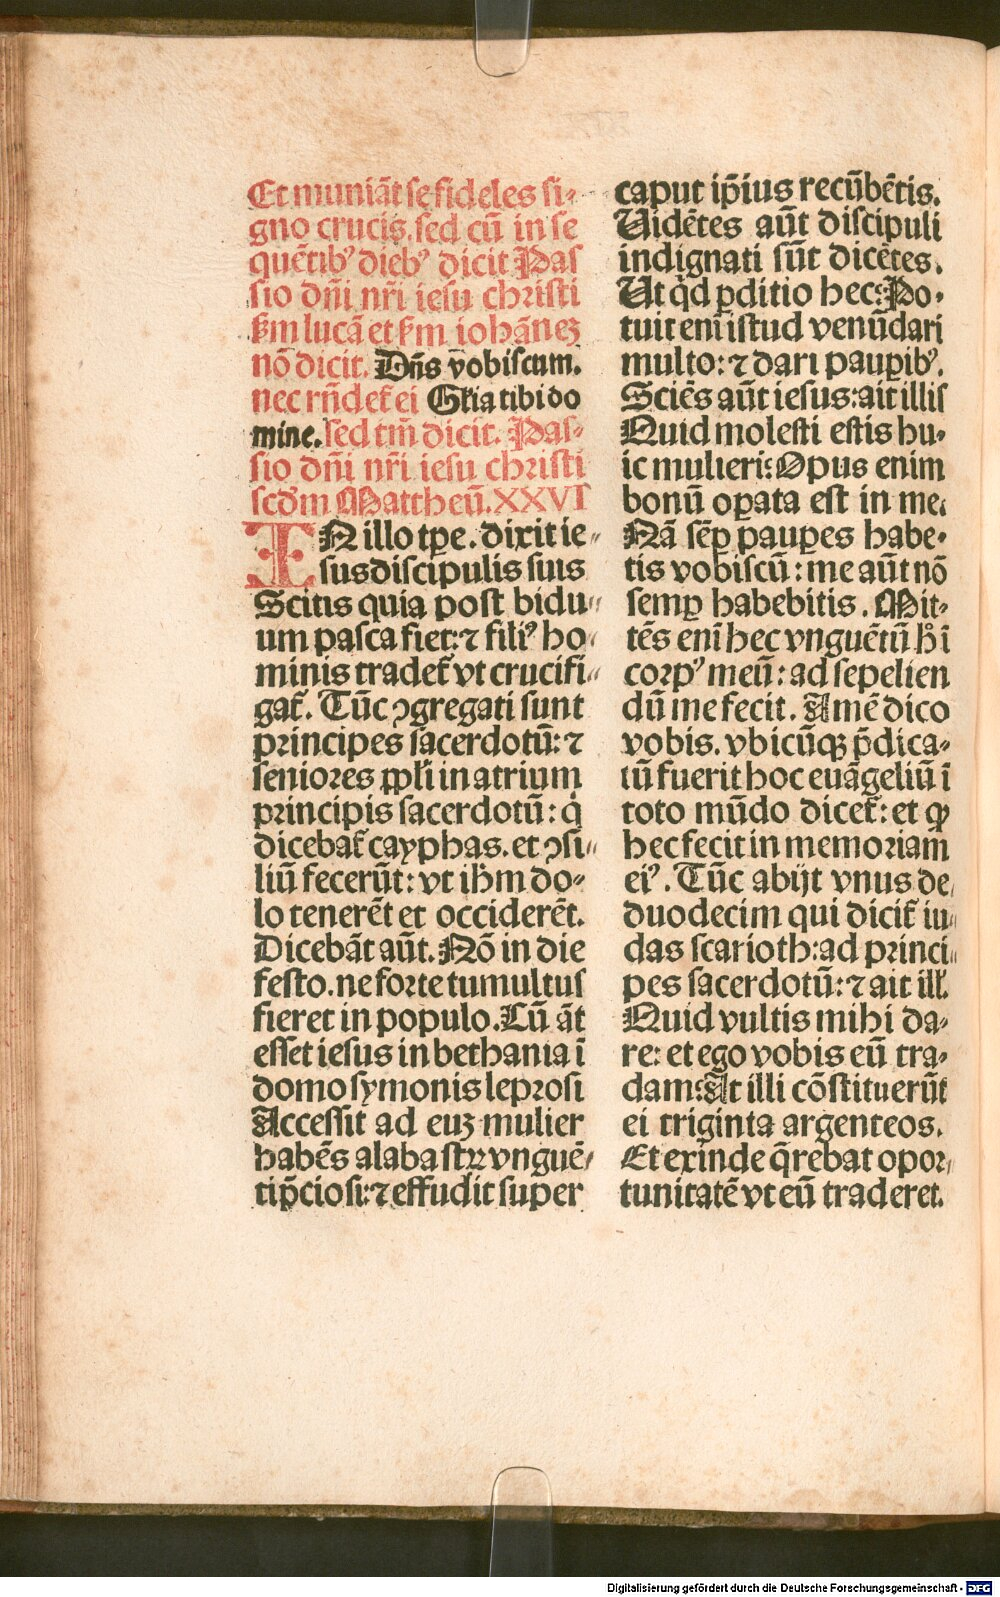 Et muniāt se fideles si-
gno crucis. sed cū in se
quētibꝰ diebꝰ dicit Pas
sio dn̄i nr̄i iesu christi
ẜm lucā et ẜm iohāneꝫ
nō dicit. Dn̄s vobiscum.
nec rn̄detͬ ei Gl̄ia tibi do
mine. sed tm̄ dicit. Pas-
sio dn̄i nr̄i iesu christi
scd̄m Mattheū. XXVI
IN illo tp̄e. dixit ie-
sus discipulis suis
Scitis quia post bidu-
um pasca fiet: ⁊ filiꝰ ho
minis tradetͬ vt crucifi-
gatͬ. Tūc ꝯgregati sunt
principes sacerdotū: ⁊
seniores ppl̄i in atrium
principis sacerdotū: qͥ
dicebatͬ cayphas. et ꝯsi-
liū fecerūt: vt ih̄m do-
lo tenerēt et occiderēt.
Dicebāt aūt. Nō in die
festo. ne forte tumultus
fieret in populo. Cū āt
esset iesus in bethania ī
domo symonis leprosi
Accessit ad euꝫ mulier
habēs alabastrꝛ vnguē-
ti p̄ciosi: ⁊ effudit super
caput ip̄ius recūbētis.
Uidētes aūt discipuli
indignati sūt dicētes.
Ut qͥd ꝑditio hec: Po-
tuit eni istud venūdari
multo: ⁊ dari pauꝑibꝰ.
Sciēs aūt iesus: ait illis
Quid molesti estis hu-
ic mulieri: Opus enim
bonū oꝑata est in me.
Nā sēꝑ pauꝑes habe-
tis vobiscū: me aūt nō
semꝑ habebitis. Mit-
tēs enī hec vnguētū hͦ ī
corpꝰ meū: ad sepelien
dū me fecit. Amē dico
vobis. vbicūqꝫ p̄dica-
tū fuerit hoc euāgeliū ī
toto mūdo dicetͬ: et ꝙ
hec fecit in memoriam
eiꝰ. Tūc abijt vnus de
duodecim qui dicitͬ iu-
das scarioth: ad princi-
pes sacerdotū: ⁊ ait ill'.
Quid vultis mihi da-
re: et ego vobis eū tra-
dam: At illi cōstituerūt
ei triginta argenteos.
Et exinde q̄rebat opor-
tunitatē vt eū traderet.
Digitalisierung gefördert durch die Deutsche Forschungsgemeinschaft - DFG